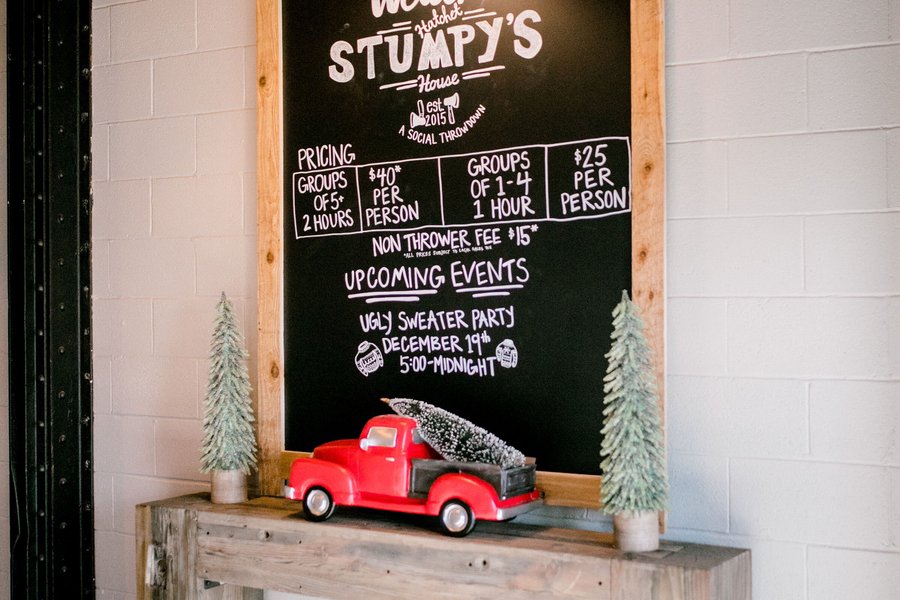 Hatchet
STUMPY'S
House
est.
2015
A SOCIAL THROWDOWN
PRICING
GROUPS
OF 5+
2 HOURS
$40*
PER
PERSON
GROUPS
OF 1-4
1 HOUR
$25
PER
PERSON
NON THROWER FEE $15*
*ALL PRICES SUBJECT TO LOCAL SALES TAX
UPCOMING EVENTS
UGLY SWEATER PARTY
DECEMBER 19th
5:00-MIDNIGHT